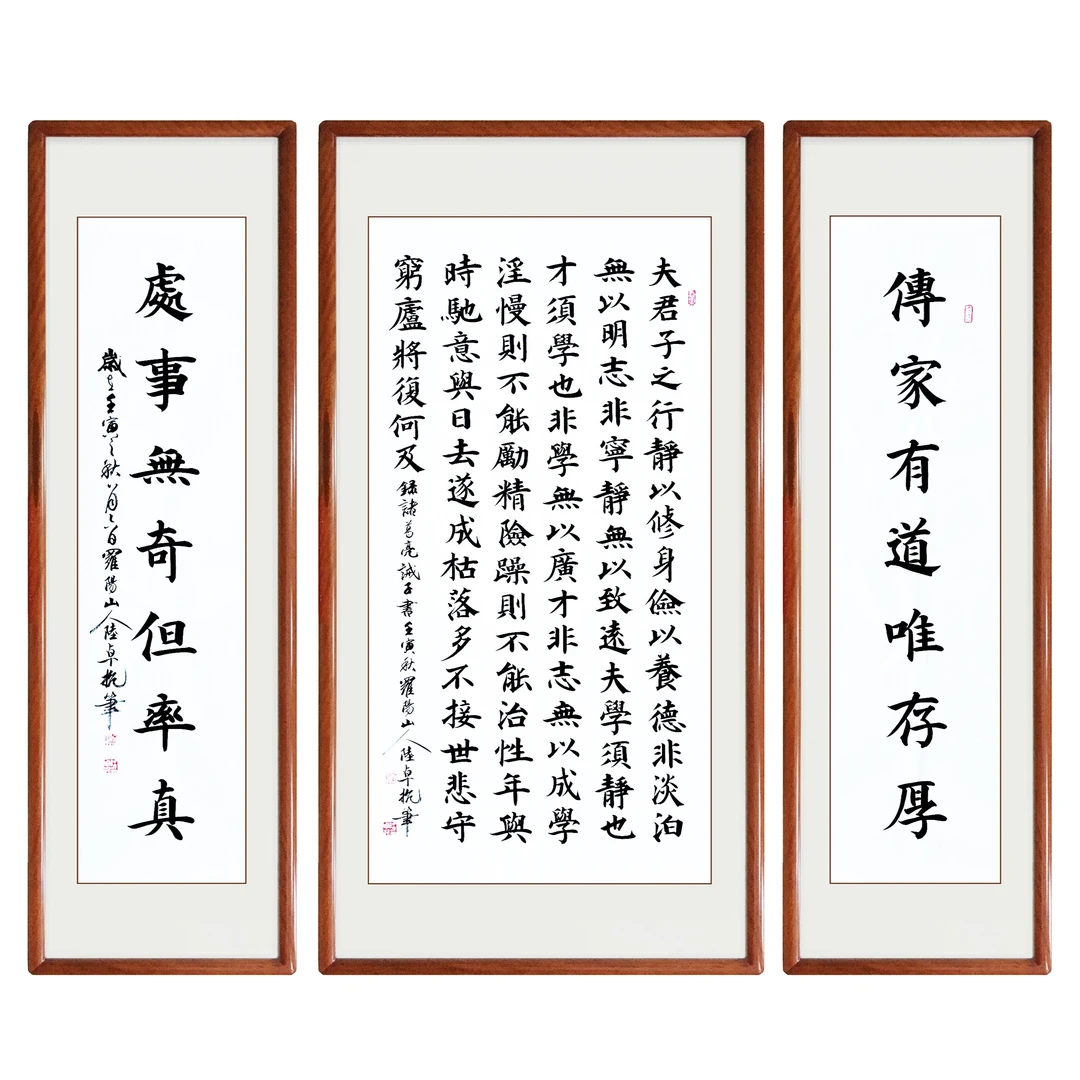 傳家有道唯存厚
夫君子之行靜以修身儉以養德非淡泊
無以明志非寧靜無以致遠夫學須靜也
才須學也非學無以廣才非志無以成學
淫慢則不能勵精險躁則不能治性年與
時馳意與日去遂成枯落多不接世悲守
窮廬將復何及 錄諸葛亮誡子書壬寅秋羅陽山人陸卓筆
處事無奇但率真
歲在壬寅之秋八月羅陽山人陸卓筆